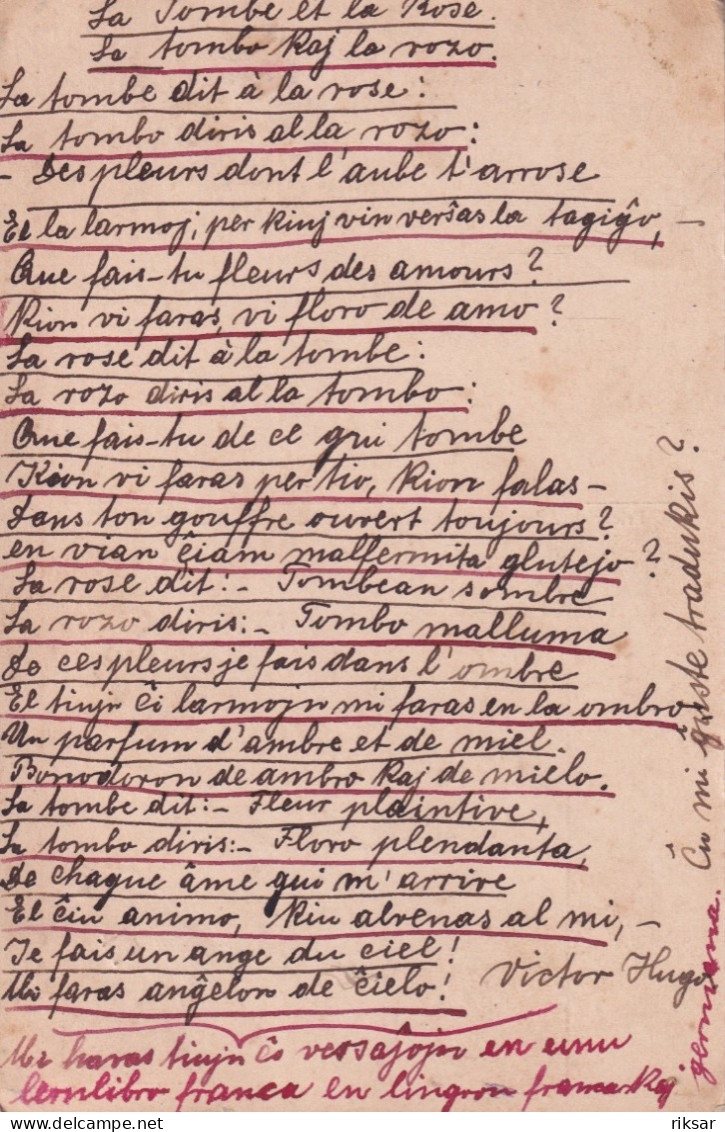 La Tombe et la Rose.
La tombo kaj la rozo.
La tombe dit à la rose:
La tombo diris al la rozo:
- Des pleurs dont l'aube t'arrose
El la larmoj, per kiuj vin verŝas la tagiĝo, -
Que fais-tu fleurs des amours?
Kion vi faras, vi floro de amo?
La rose dit à la tombe:
La rozo diris al la tombo:
Que fais-tu de ce qui tombe
Kion vi faras per tio, kion falas -
Dans ton gouffre ouvert toujours?
en vian ĉiam malfermita glutejo?
La rose dit: - Tombeau sombre
La rozo diris: - Tombo malluma
De ces pleurs je fais dans l'ombre
El tiujn ĉi larmojn mi faras en la ombro
Un parfum d'ambre et de miel.
Bonodoron de ambro kaj de mielo.
La tombe dit: - Fleur plaintive,
La tombo diris: - Floro plendanta,
De chaque âme qui m'arrive
El ĉiu animo, kiu alvenas al mi, -
Je fais un ange du ciel!
Mi faras anĝelon de ĉielo!
Victor Hugo
Mi havas tiujn ĉi versaĵojn en unu
lernlibro franca en lingvon franca kaj
germana.
Ĉu mi ĝuste tradukis?
riksar